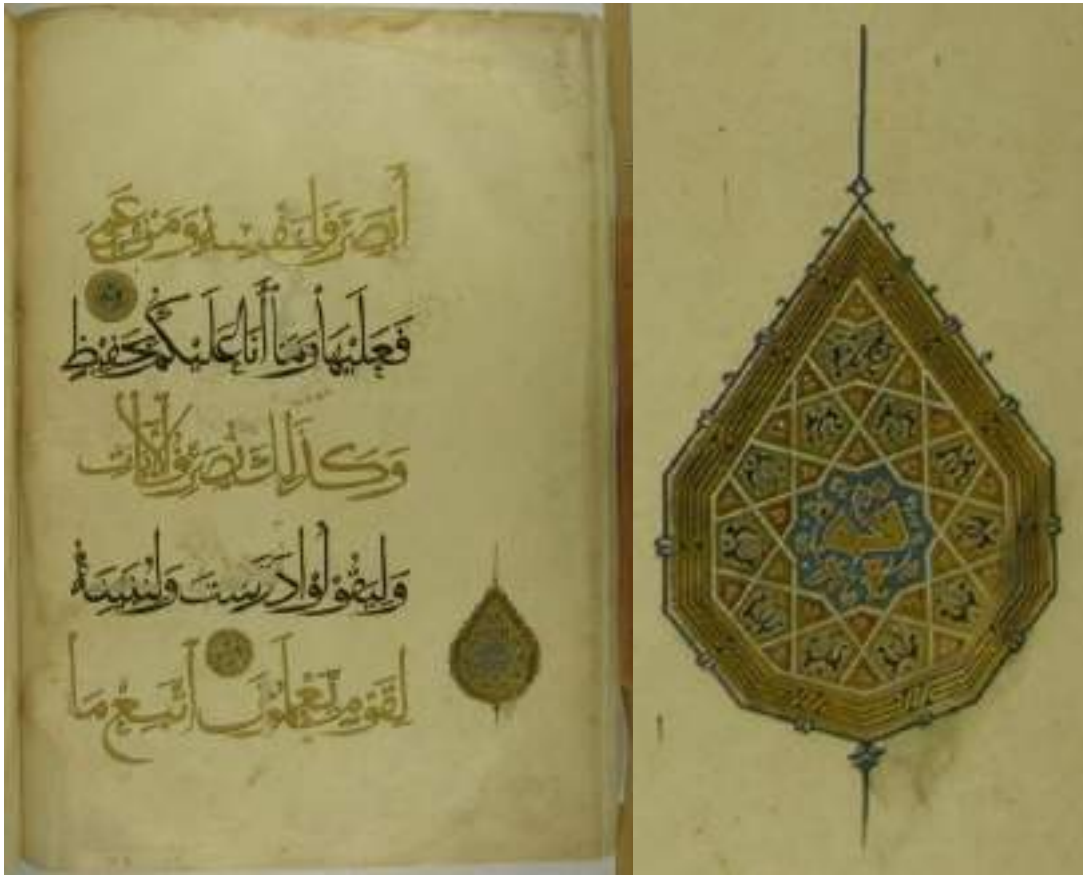 أَبْصَرَ فَلِنَفْسِهِ وَمَنْ عَمِيَ
فَعَلَيْهَا وَمَا أَنَا عَلَيْكُمْ بِحَفِيظٍ
وَكَذَلِكَ نُصَرِّفُ الْآيَاتِ
وَلِيَقُولُوا دَرَسْتَ وَلِنُبَيِّنَهُ
لِقَوْمٍ يَعْلَمُونَ اتَّبِعْ مَا